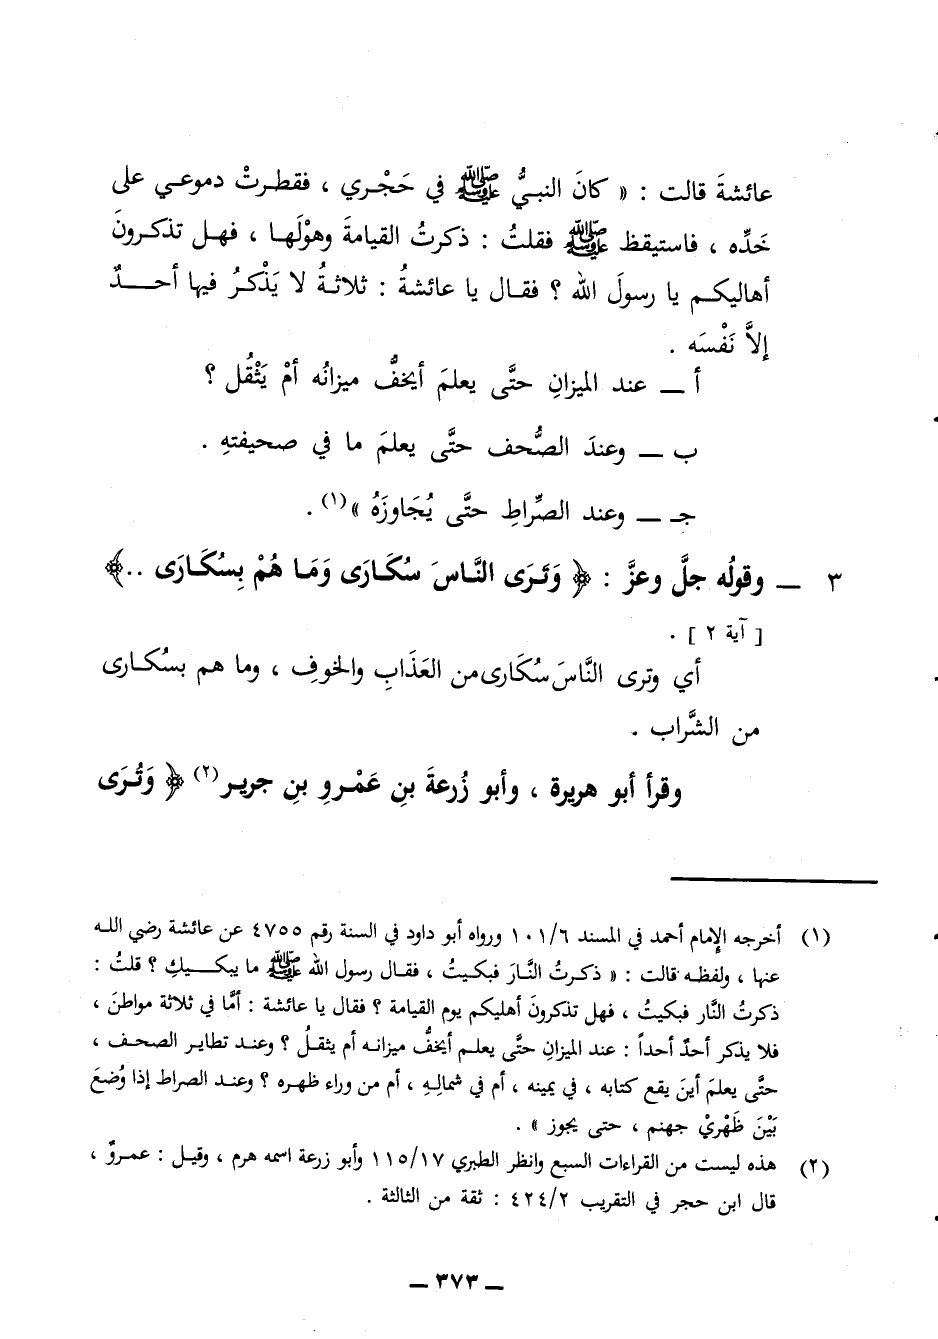 عائشةَ قالت : « كانَ النبيُّ ﷺ في حَجْري ، فقطرتْ دموعي على
خَدِّه ، فاستيقظ ﷺ فقلتُ : ذكرتُ القيامةَ وهوْلَها ، فهل تذكرونَ
أهاليكم يا رسولَ الله ؟ فقال يا عائشةُ : ثلاثةُ لا يَذْكرُ فيها أحدٌ
إلاَّ نَفْسَه .
أ ــ عند الميزانِ حتَّى يعلمَ أيخفُّ ميزانُه أمْ يَثْقُل ؟
ب ــ وعندَ الصُّحف حتَّى يعلمَ ما في صحيفتهِ .
جـ ــ وعند الصِّراطِ حتَّى يُجَاوزَهُ »(١) .
٣ ــ وقولُه جلَّ وعزَّ : ﴿ وَتَرَى النَّاسَ سُكَارَى وَمَا هُمْ بِسُكَارَى ..﴾
[ آية ٢ ] .
أي وترى النَّاسَ سُكَارى من العَذَابِ والخوفِ ، وما هم بسُكارى
من الشَّراب .
وقرأ أبو هريرة ، وأبو زُرعةَ بنِ عَمْروِ بنِ جرير(٢) ﴿ وَتُرَى
(١) أخرجه الإمام أحمد في المسند ١٠١/٦ ورواه أبو داود في السنة رقم ٤٧٥٥ عن عائشة رضي الله
عنها ، ولفظه قالت : « ذكرتُ النَّارَ فبكيتُ ، فقال رسول الله ﷺ ما يبكيكِ ؟ قلتُ :
ذكرتُ النَّار فبكيتُ ، فهل تذكرونَ أهليكم يوم القيامة ؟ فقال يا عائشة : أمَّا في ثلاثة مواطنَ ،
فلا يذكر أحدٌ أحداً : عند الميزانِ حتَّى يعلم أيخفُّ ميزانه أم يثقلُ ؟ وعند تطاير الصحف ،
حتَّى يعلمَ أينَ يقع كتابه ، في يمينه ، أم في شمالِهِ ، أم من وراء ظهره ؟ وعند الصراط إذا وُضعَ
بَيْنَ ظَهْريْ جهنم ، حتى يجوز » .
(٢) هذه ليست من القراءات السبع وانظر الطبري ١١٥/١٧ وأبو زرعة اسمه هرم ، وقيل : عمروٌ ،
قال ابن حجر في التقريب ٤٢٤/٢ : ثقة من الثالثة .
ــ ٣٧٣ ــ